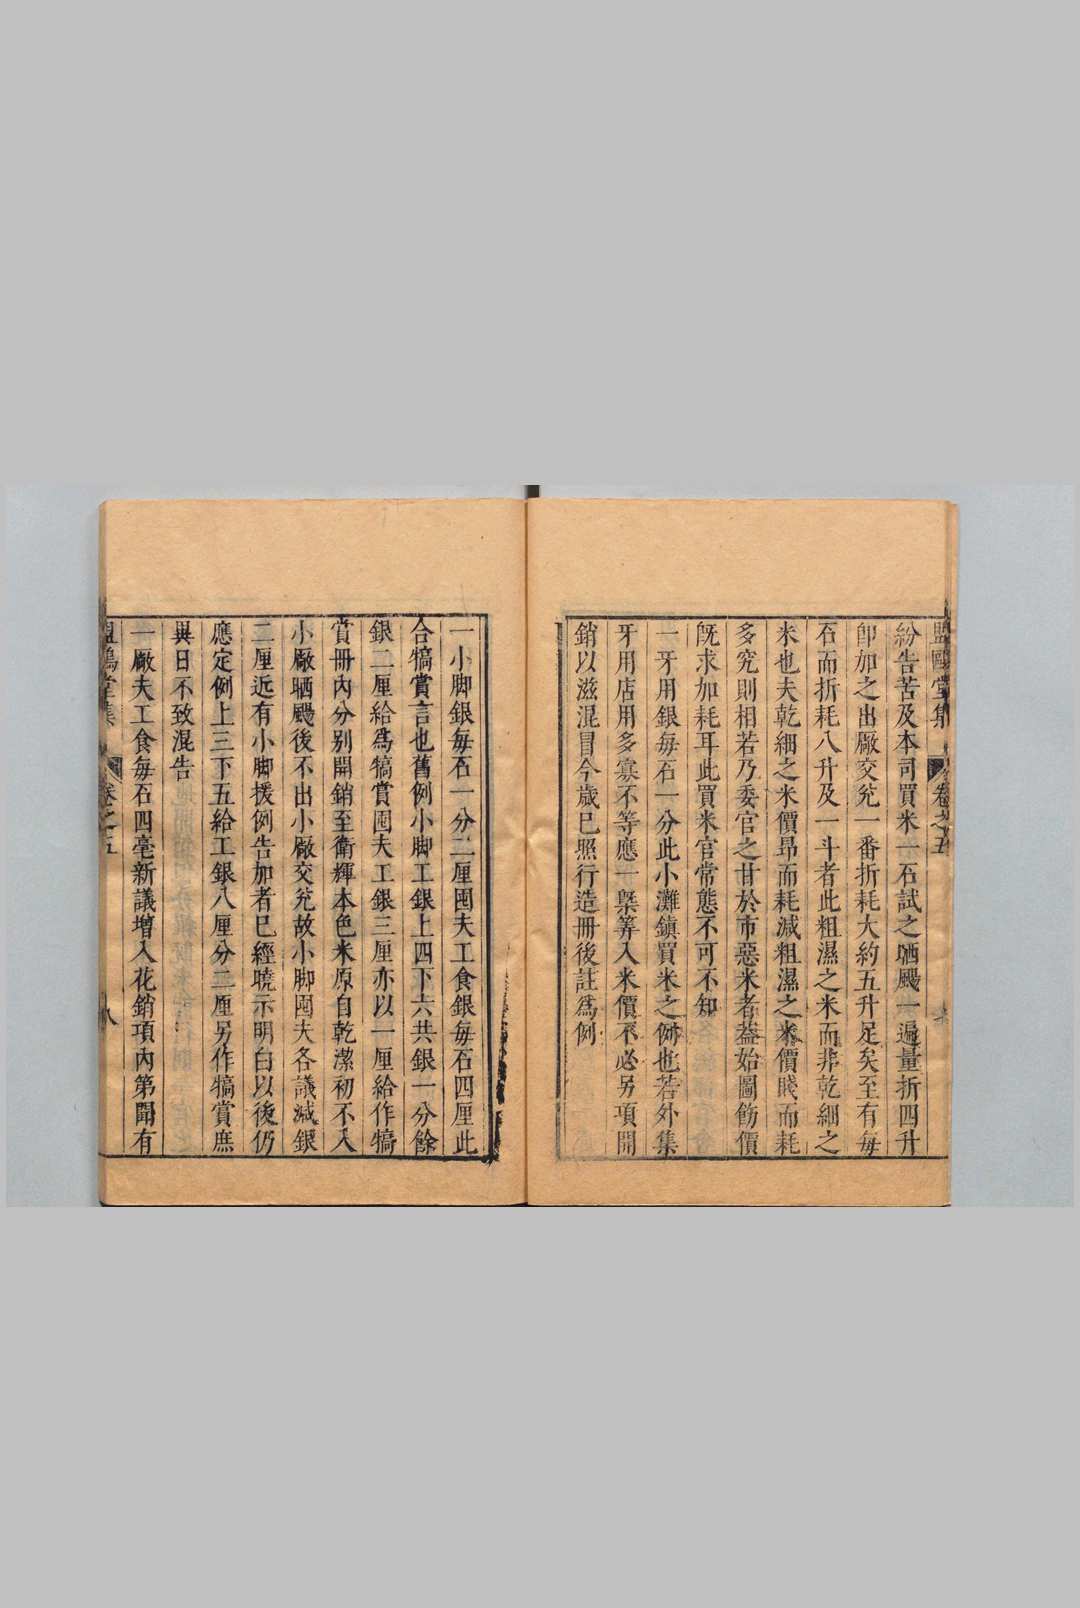 盟鷗堂集 卷之五
紛告苦及本司買米一石試之晒颺一遍量折四升
卽加之出厰交兌一番折耗大約五升足矣至有每
石而折耗八升及一斗者此粗濕之米而非乾細之
米也夫乾細之米價昂而耗減粗濕之米價賤而耗
多究則相若乃委官之甘於市惡米者葢始圖餙價
旣求加耗耳此買米官常態不可不知
一牙用銀每石一分此小灘鎮買米之例也若外集
牙用店用多寡不等應一槩筭入米價不必另項開
銷以滋混冒今歲已照行造冊後註爲例
一小脚銀每石一分二厘囤夫工食銀每石四厘此
合犒賞言也舊例小脚工銀上四下六共銀一分餘
銀二厘給爲犒賞囤夫工銀三厘亦以一厘給作犒
賞冊內分別開銷至衛輝本色米原自乾潔初不入
小厰晒颺後不出小厰交兌故小脚囤夫各議減銀
二厘近有小脚援例告加者已經曉示明白以後仍
應定例上三下五給工銀八厘分二厘另作犒賞庶
異日不致混告
一厰夫工食每石四毫新議增入花銷項內第聞有
盟鷗堂集 卷之五 八